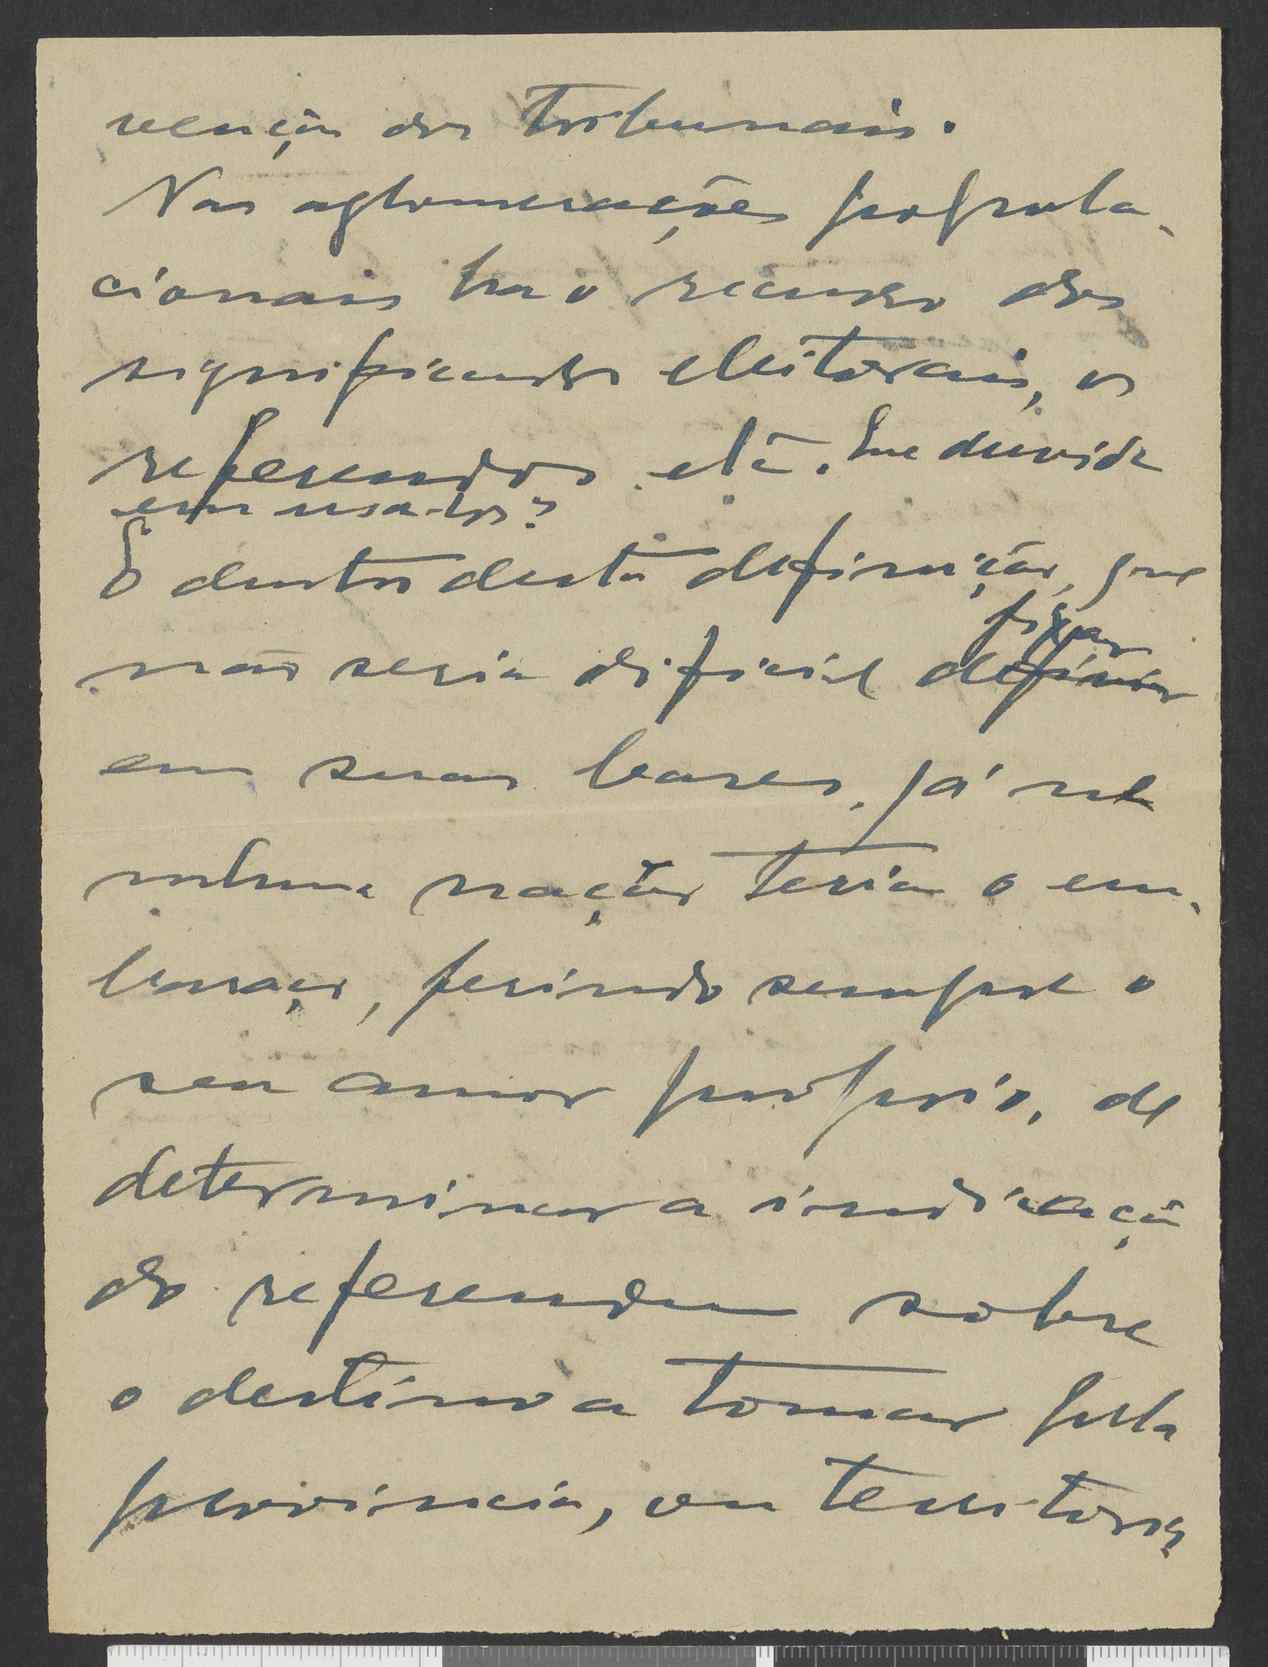 venção dos tribunais.
Nas aglomerações popula-
cionais ha o recurso dos
significandos eleitorais, os
referendos etc. Que duvida
em usa-los?
E dentro desta definição, que
não seria dificil definir fixar
em suas bases, já ne
nhuma nação teria o em-
baraço, ferindo sempre o
seu amor proprio, de
determinar a indicação
do referendum sobre
o destino a tomar pela
provincia, ou territorio